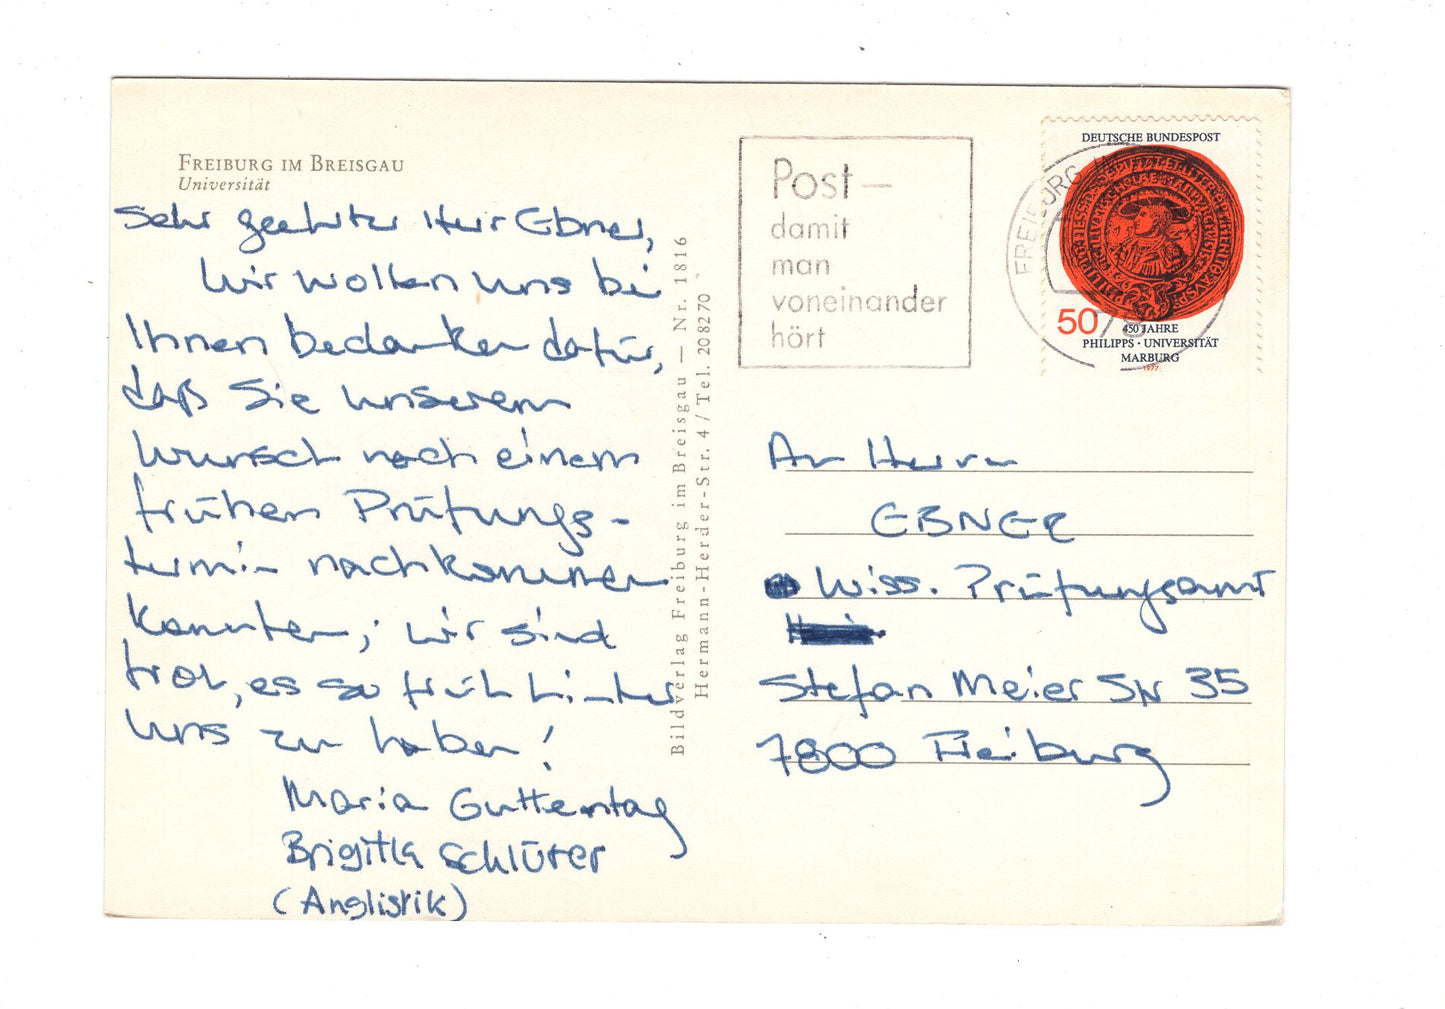 FREIBURG IM BREISGAU
Universität
Sehr geehrter Herr Ebner,
wir wollen uns bei
Ihnen bedanken dafür,
daß Sie unserem
Wunsch nach einem
frühen Prüfungs-
termin nachkommen
konnten; wir sind
froh, es so früh hinter
uns zu haben!
Maria Guttentag
Brigitte Schlüter
(Anglistik)
Bildverlag Freiburg im Breisgau — Nr. 1816
Hermann-Herder-Str. 4 / Tel. 208270
Post —
damit
man
voneinander
hört
FREIBURG
DEUTSCHE BUNDESPOST
50
450 JAHRE
PHILIPPS · UNIVERSITÄT
MARBURG
1977
An Herrn
EBNER
Wiss. Prüfungsamt
Stefan Meier Str 35
7800 Freiburg